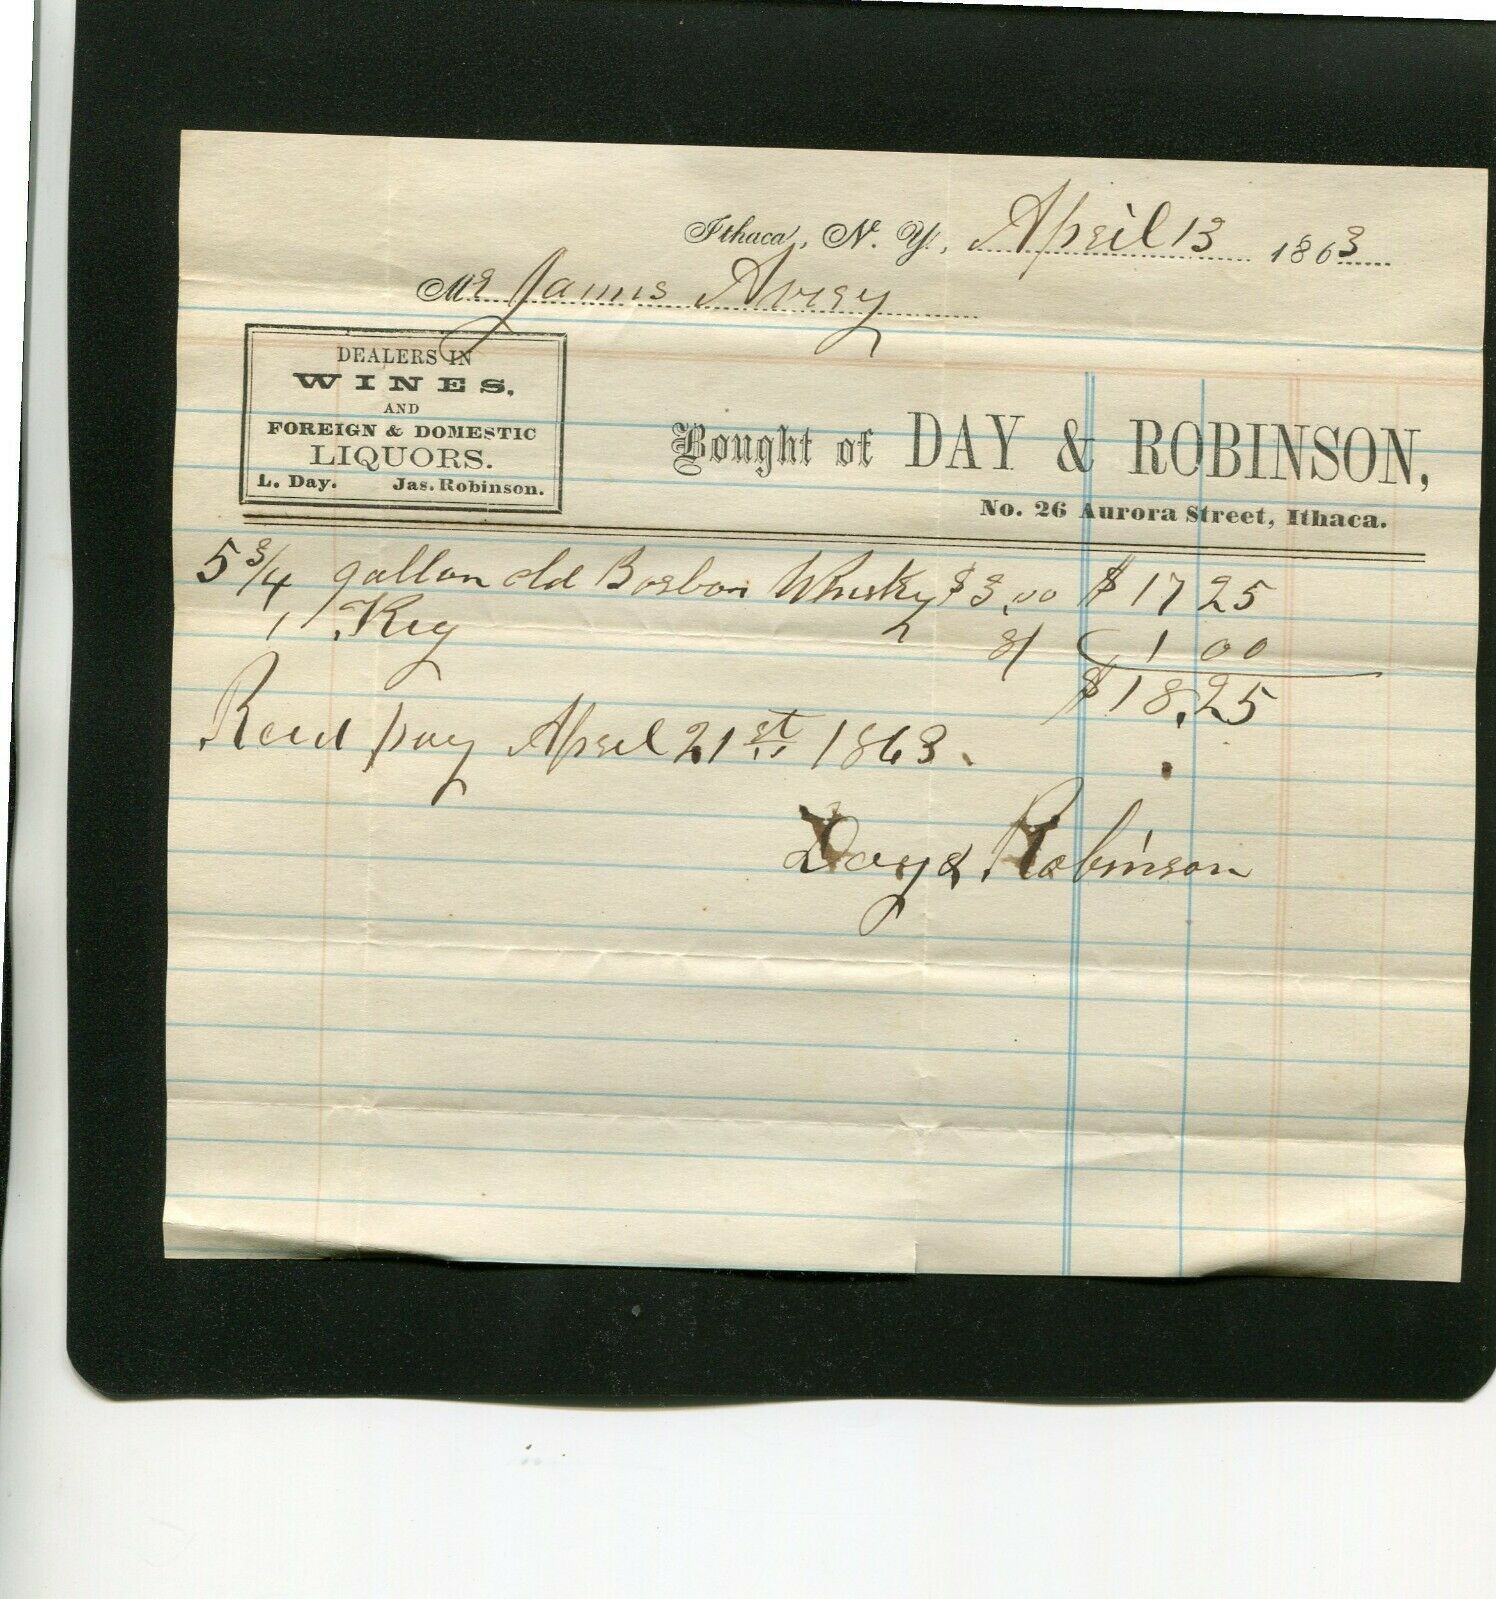 Ithaca, N. Y., April 13 1863
Mr James Avery
DEALERS IN
WINES,
AND
FOREIGN & DOMESTIC
LIQUORS.
L. Day. Jas. Robinson.
Bought of DAY & ROBINSON,
No. 26 Aurora Street, Ithaca.
5 3/4 gallon old Borbon Whisky $3.00 $17 25
1 Keg 8/ 1 00
$18.25
Recd pay April 21st 1863.
Day & Robinson